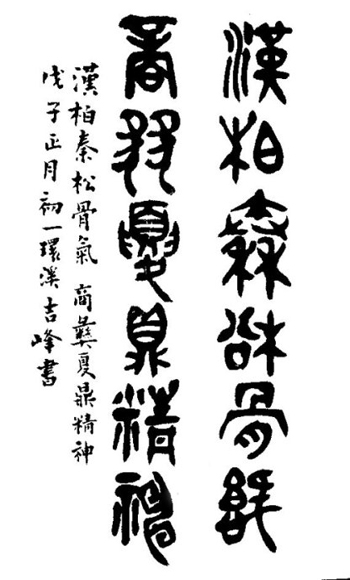 漢柏秦松骨氣
商彝夏鼎精神
漢柏秦松骨氣 商彝夏鼎精神
戊子正月初一環溪吉峰書